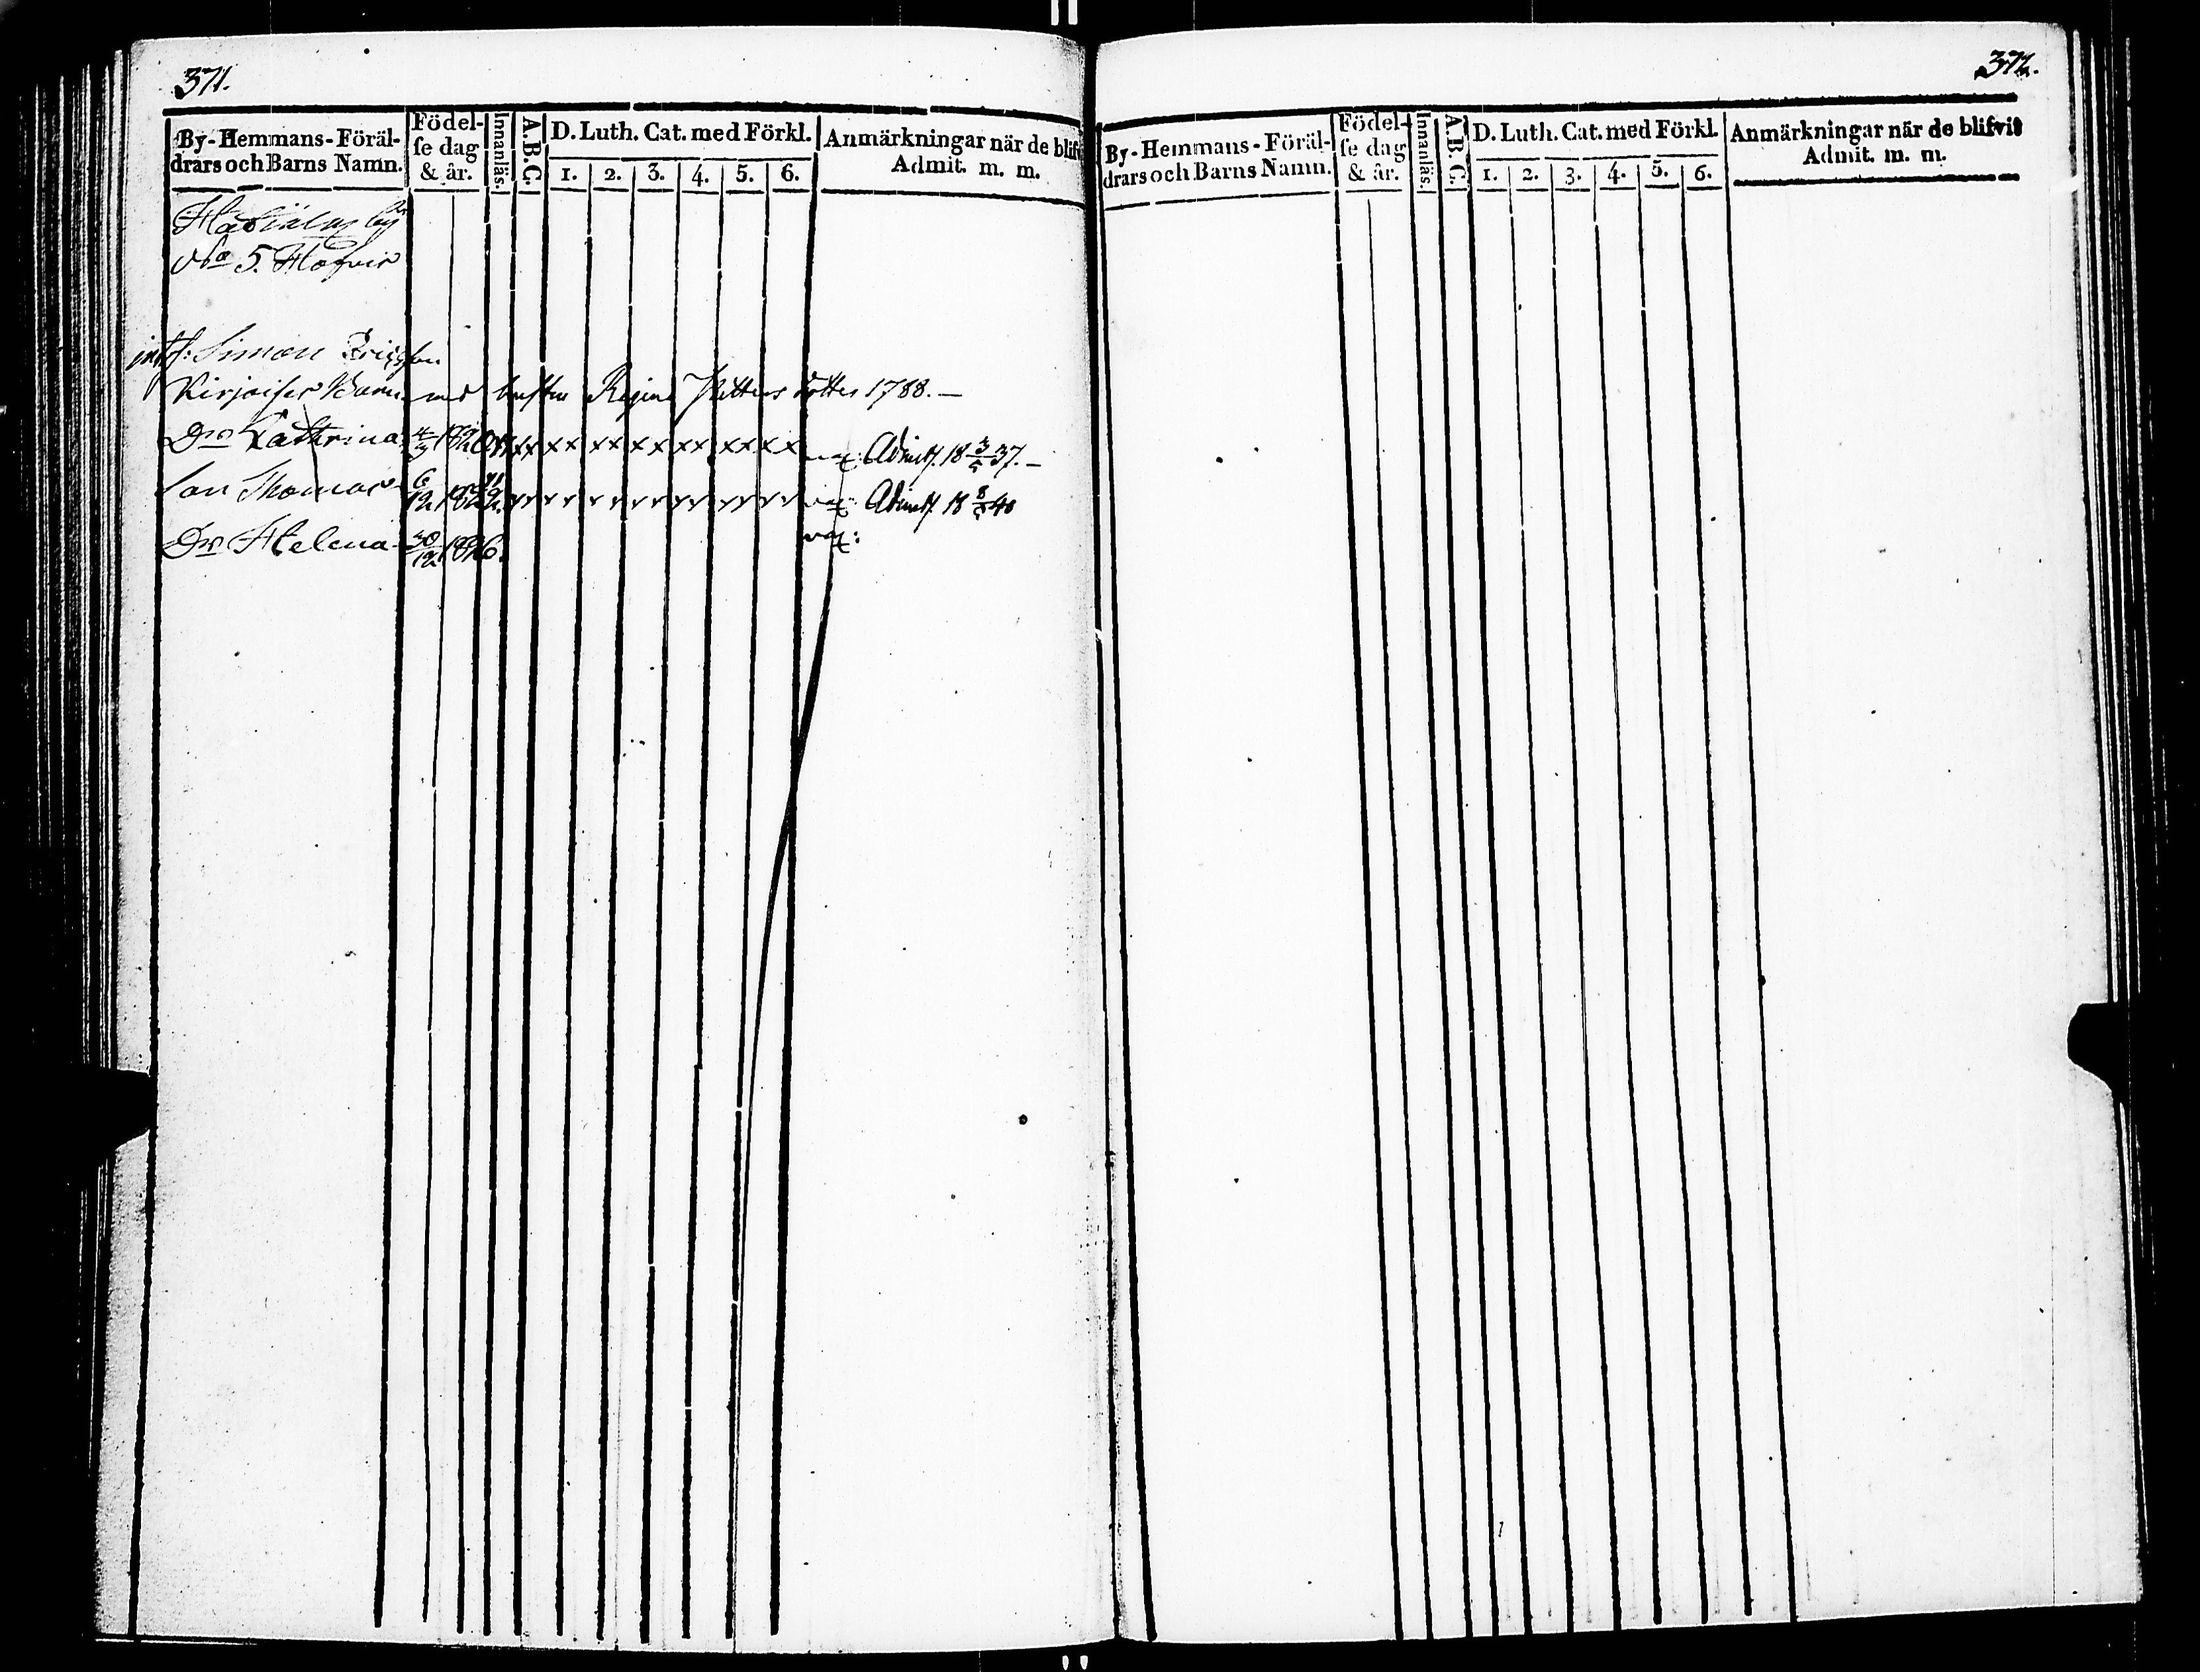 371.
By-Hemmans-Föräl-
drars och Barns Namn.
Födel-
se dag
& år.
Innanläs.
A.B.C.
D. Luth. Cat. med Förkl.
1. 2. 3. 4. 5. 6.
Anmärkningar när de blifvit
Admit. m. m.
No 5.
Simon Ericsson
Barn med Regina Petters dotter 1788. —
Dr Kathrina x x x x x x x x x x x x vac: Admitt. 18 3/5 37. —
Son Thomas 6/12 1822. v v v v v v v v v v v v vac: Admitt. 18 40
Dr Helena 30/12 1826. vac:
372.
By-Hemmans-Föräl-
drars och Barns Namn.
Födel-
se dag
& år.
Innanläs.
A.B.C.
D. Luth. Cat. med Förkl.
1. 2. 3. 4. 5. 6.
Anmärkningar när de blifvit
Admit. m. m.